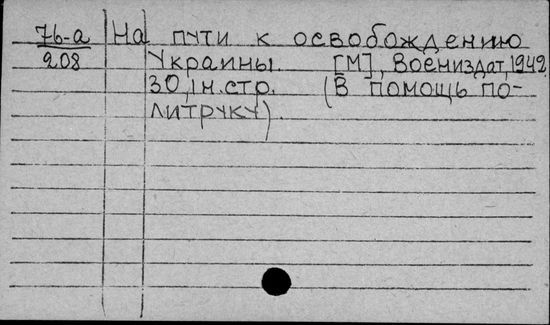 76-а На пути к освобождению
208 Украины. [М], Воениздат, 1942
30, 1н.стр. (В помощь по-
литруку).